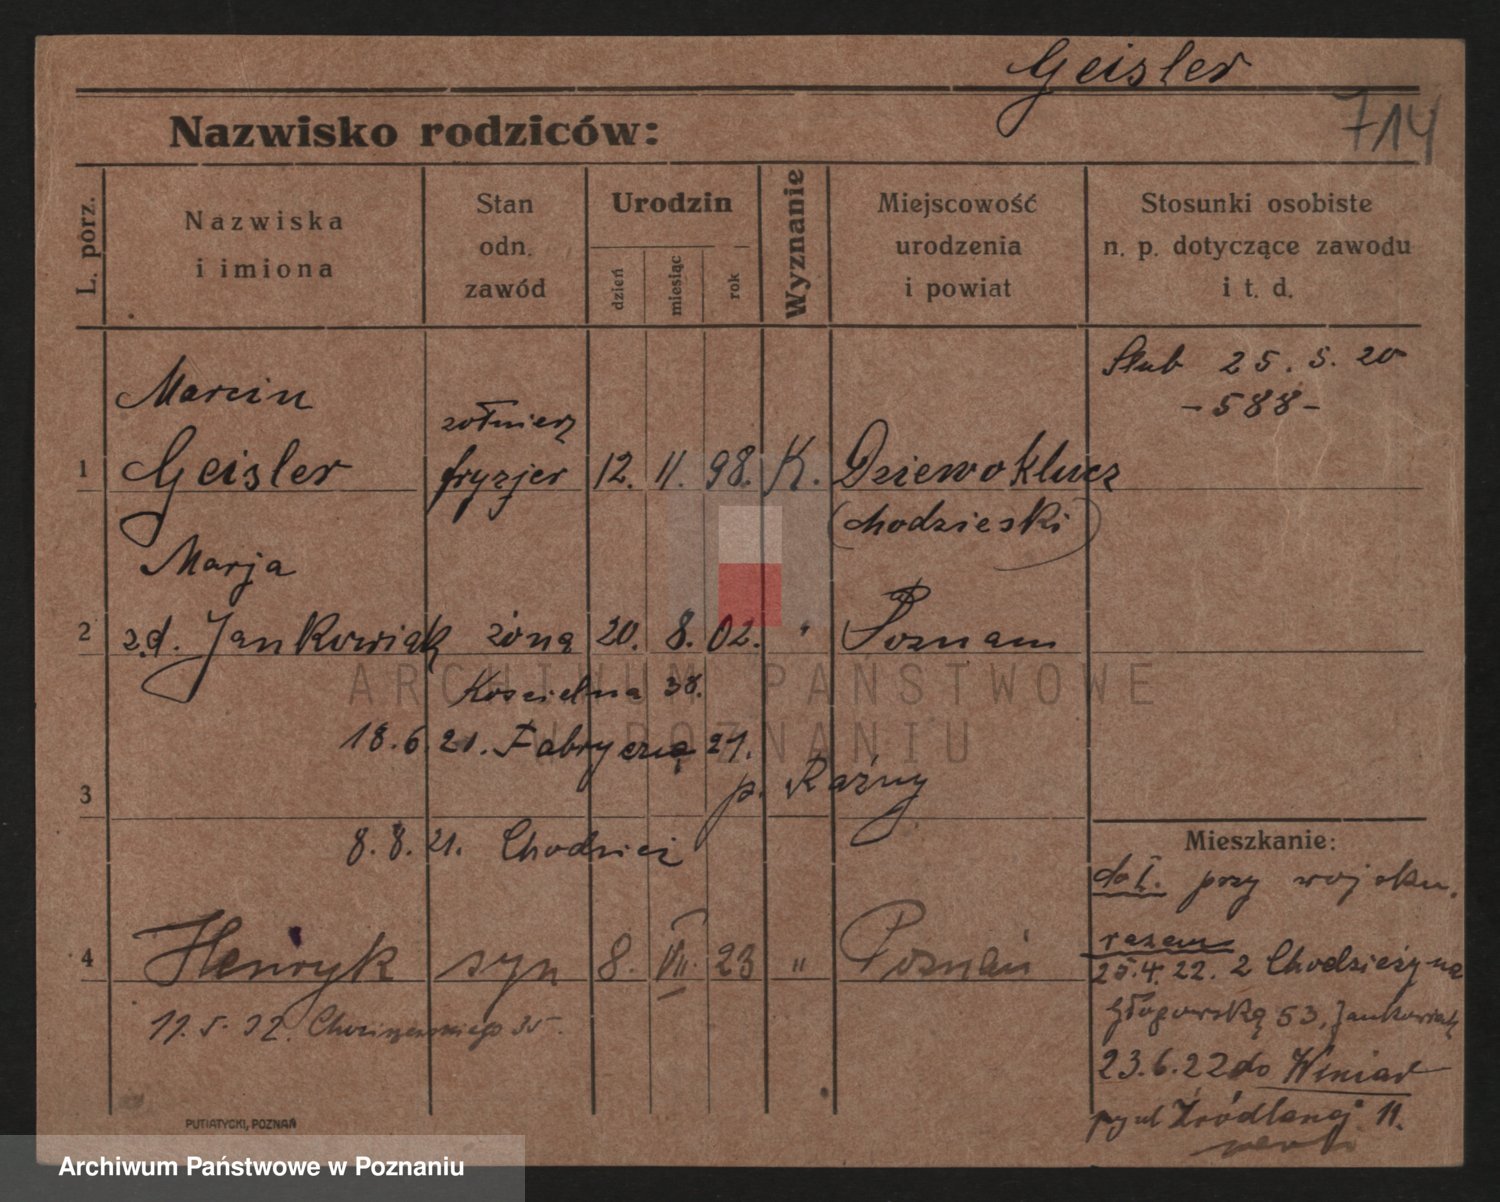 Geisler
714
Nazwisko rodziców:
L. porz.
Nazwiska
i imiona
Stan
odn.
zawód
Urodzin
dzień
miesiąc
rok
Wyznanie
Miejscowość
urodzenia
i powiat
Stosunki osobiste
n. p. dotyczące zawodu
i t. d.
Ślub 25. 5. 20
-588-
Marcin
żołnierz
1 Geisler fryzjer 12. 11. 98. K. Dziewoklucz
(chodzieski)
Marja
2 z.d. Jankowiak żona 20. 8. 02. " Poznań
Kościelna 38.
18.6.21. Fabryczna 21.
p. Raźny
3
8.8.21. Chodzież
Mieszkanie:
do I. przy wojsku.
razem
25.4.22. z Chodzieży na
Głogowską 53, Jankowiak
4 Henryk syn 8. VII. 23 " Poznań
11.5.32. 35.
23.6.22 do Winiar
przy ul Źródlanej 11.
PUTIATYCKI, POZNAŃ
ARCHIWUM PAŃSTWOWE
W POZNANIU
Archiwum Państwowe w Poznaniu